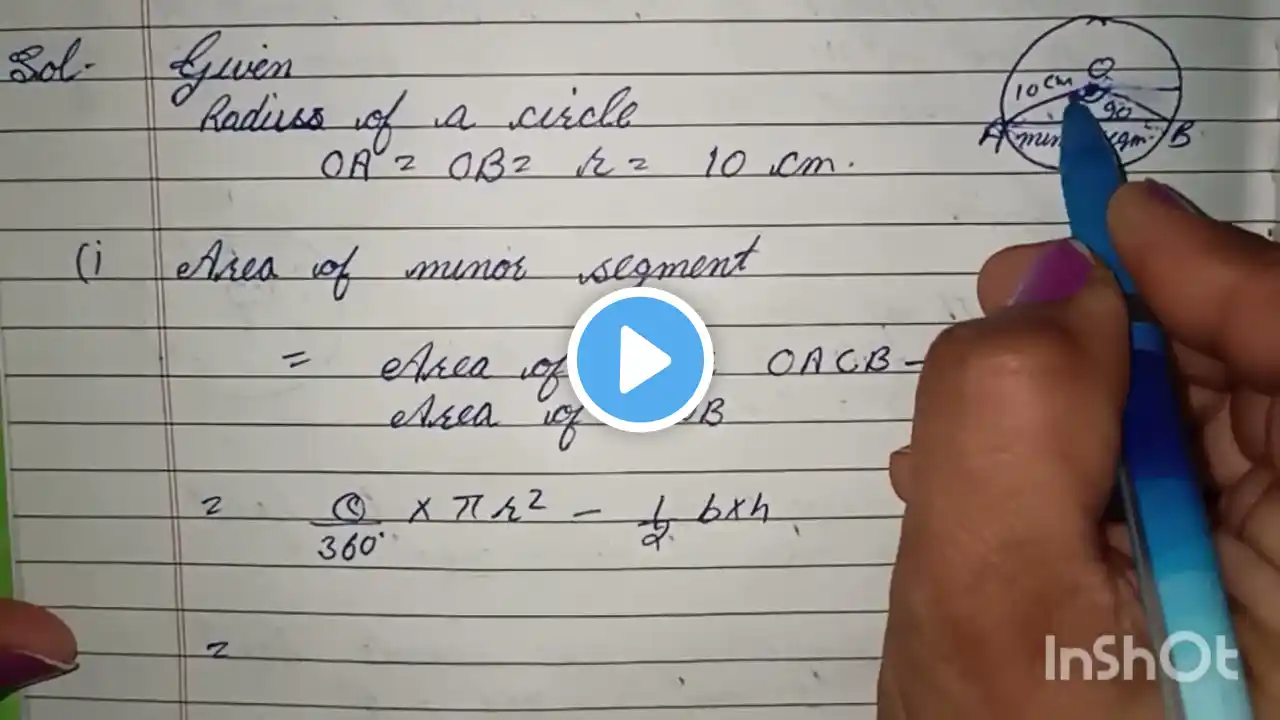 Sol. Given
Radius of a circle
OA = OB = r = 10 cm.
(i Area of minor segment
= Area of OACB -
Area of B
= θ/360° × πr² - 1/2 b×h
=
O
10 cm
90
A B
InShOt